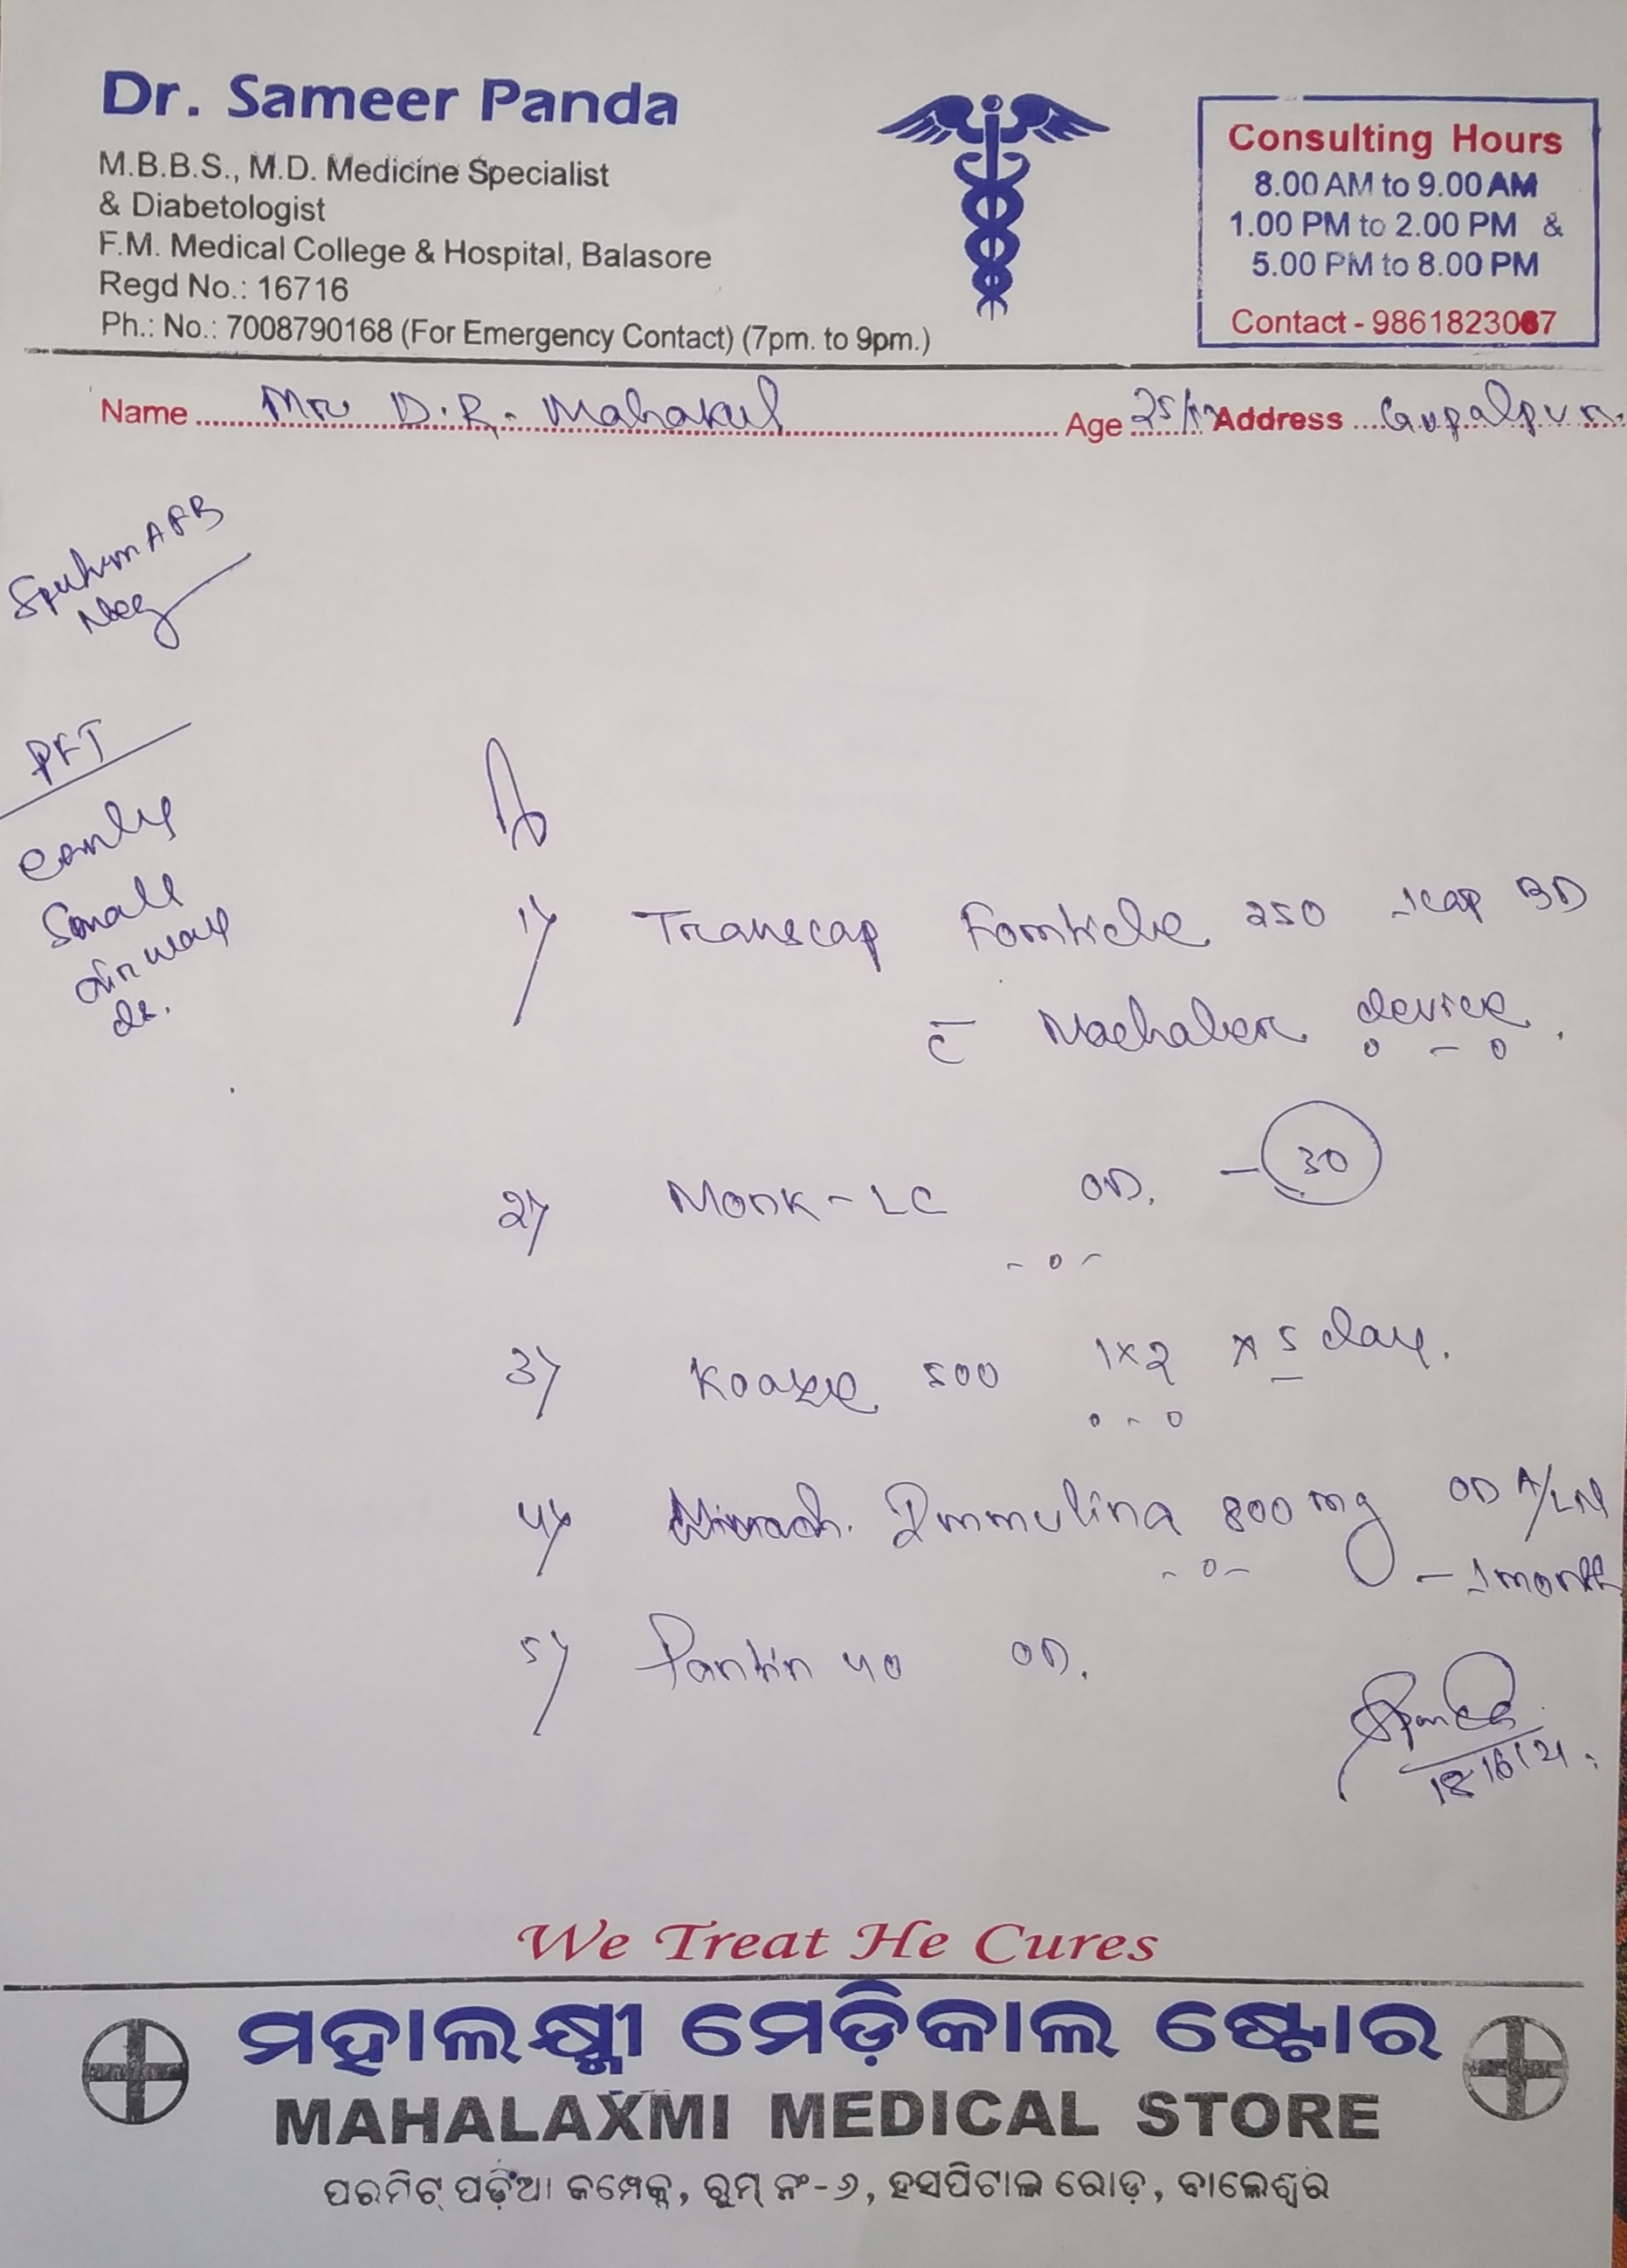 Dr. Sameer Panda
M.B.B.S., M.D. Medicine Specialist
& Diabetologist
F.M. Medical College & Hospital, Balasore
Regd No.: 16716
Ph.: No.: 7008790168 (For Emergency Contact) (7pm. to 9pm.)
Consulting Hours
8.00 AM to 9.00 AM
1.00 PM to 2.00 PM &
5.00 PM to 8.00 PM
Contact - 9861823067
Name Mr D.R. Mahakul Age 25/ Address Gopalpur
Sputum AFB
Neg
PFT
early
Small
airway
ds.
1) Transcap Forticle 250 1cap BD
c̅ device.
2) Monk-LC OD. - 30
3) 500 1x2 x 5 day.
4) Immulina 800 mg OD A/LN
- 1 month
5) Pantin 40 OD.
18/6/21
We Treat He Cures
ମହାଲକ୍ଷ୍ମୀ ମେଡ଼ିକାଲ ଷ୍ଟୋର
MAHALAXMI MEDICAL STORE
ପରମିଟ୍ ପଡ଼ିଆ କମ୍ପେକ୍ସ, ରୁମ୍ ନଂ-୬, ହସପିଟାଲ ରୋଡ଼, ବାଲେଶ୍ଵର